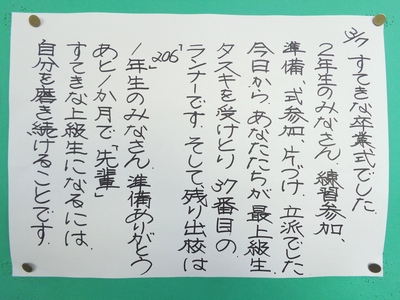 3/7 すてきな卒業式でした
2年生のみなさん 練習参加、
準備、式参加、片づけ 立派でした
今日から、あなたたちが最上級生
タスキを受けとり 37番目の
ランナーです。そして、残り出校は
「206」
1年生のみなさん 準備ありがとう
あと1か月で「先輩」
すてきな上級生になるには
自分を磨き続けることです。